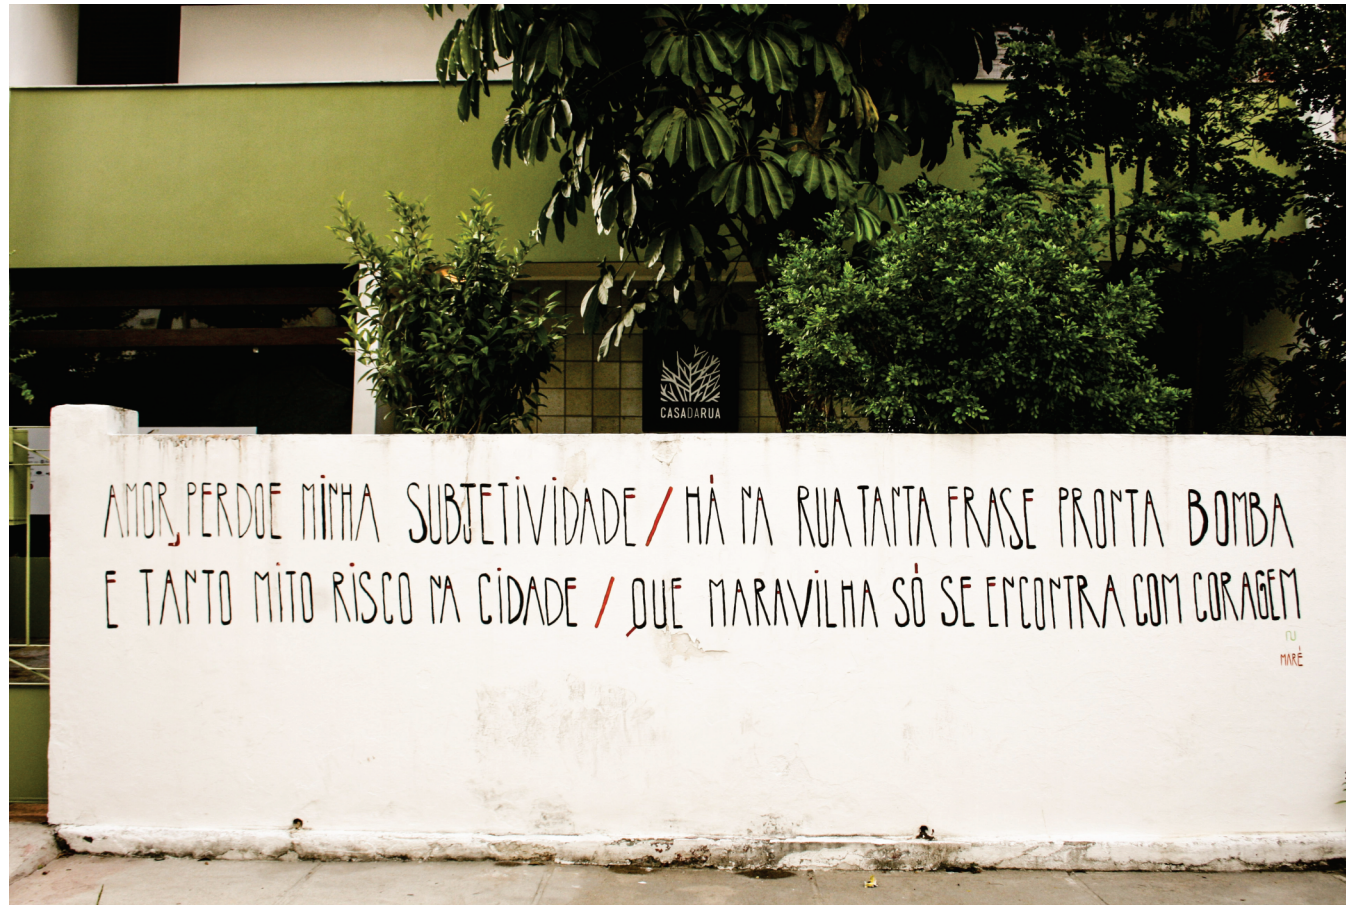 CASADARUA
AMOR, PERDOE MINHA SUBJETIVIDADE / HÁ NA RUA TANTA FRASE PRONTA BOMBA
E TANTO MITO RISCO NA CIDADE / QUE MARAVILHA SÓ SE ENCONTRA COM CORAGEM
MARÉ